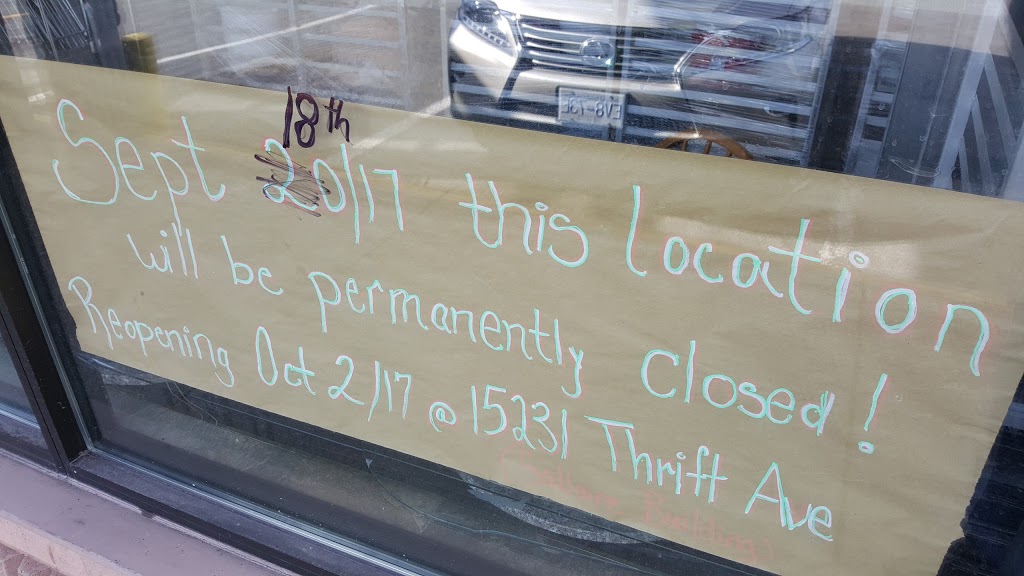 18th
Sept 20/17 this location
will be permanently closed!
Reopening Oct 2/17 @ 15231 Thrift Ave